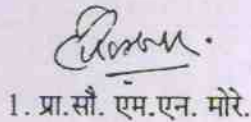 1. प्रा.सौ. एम.एन. मोरे.